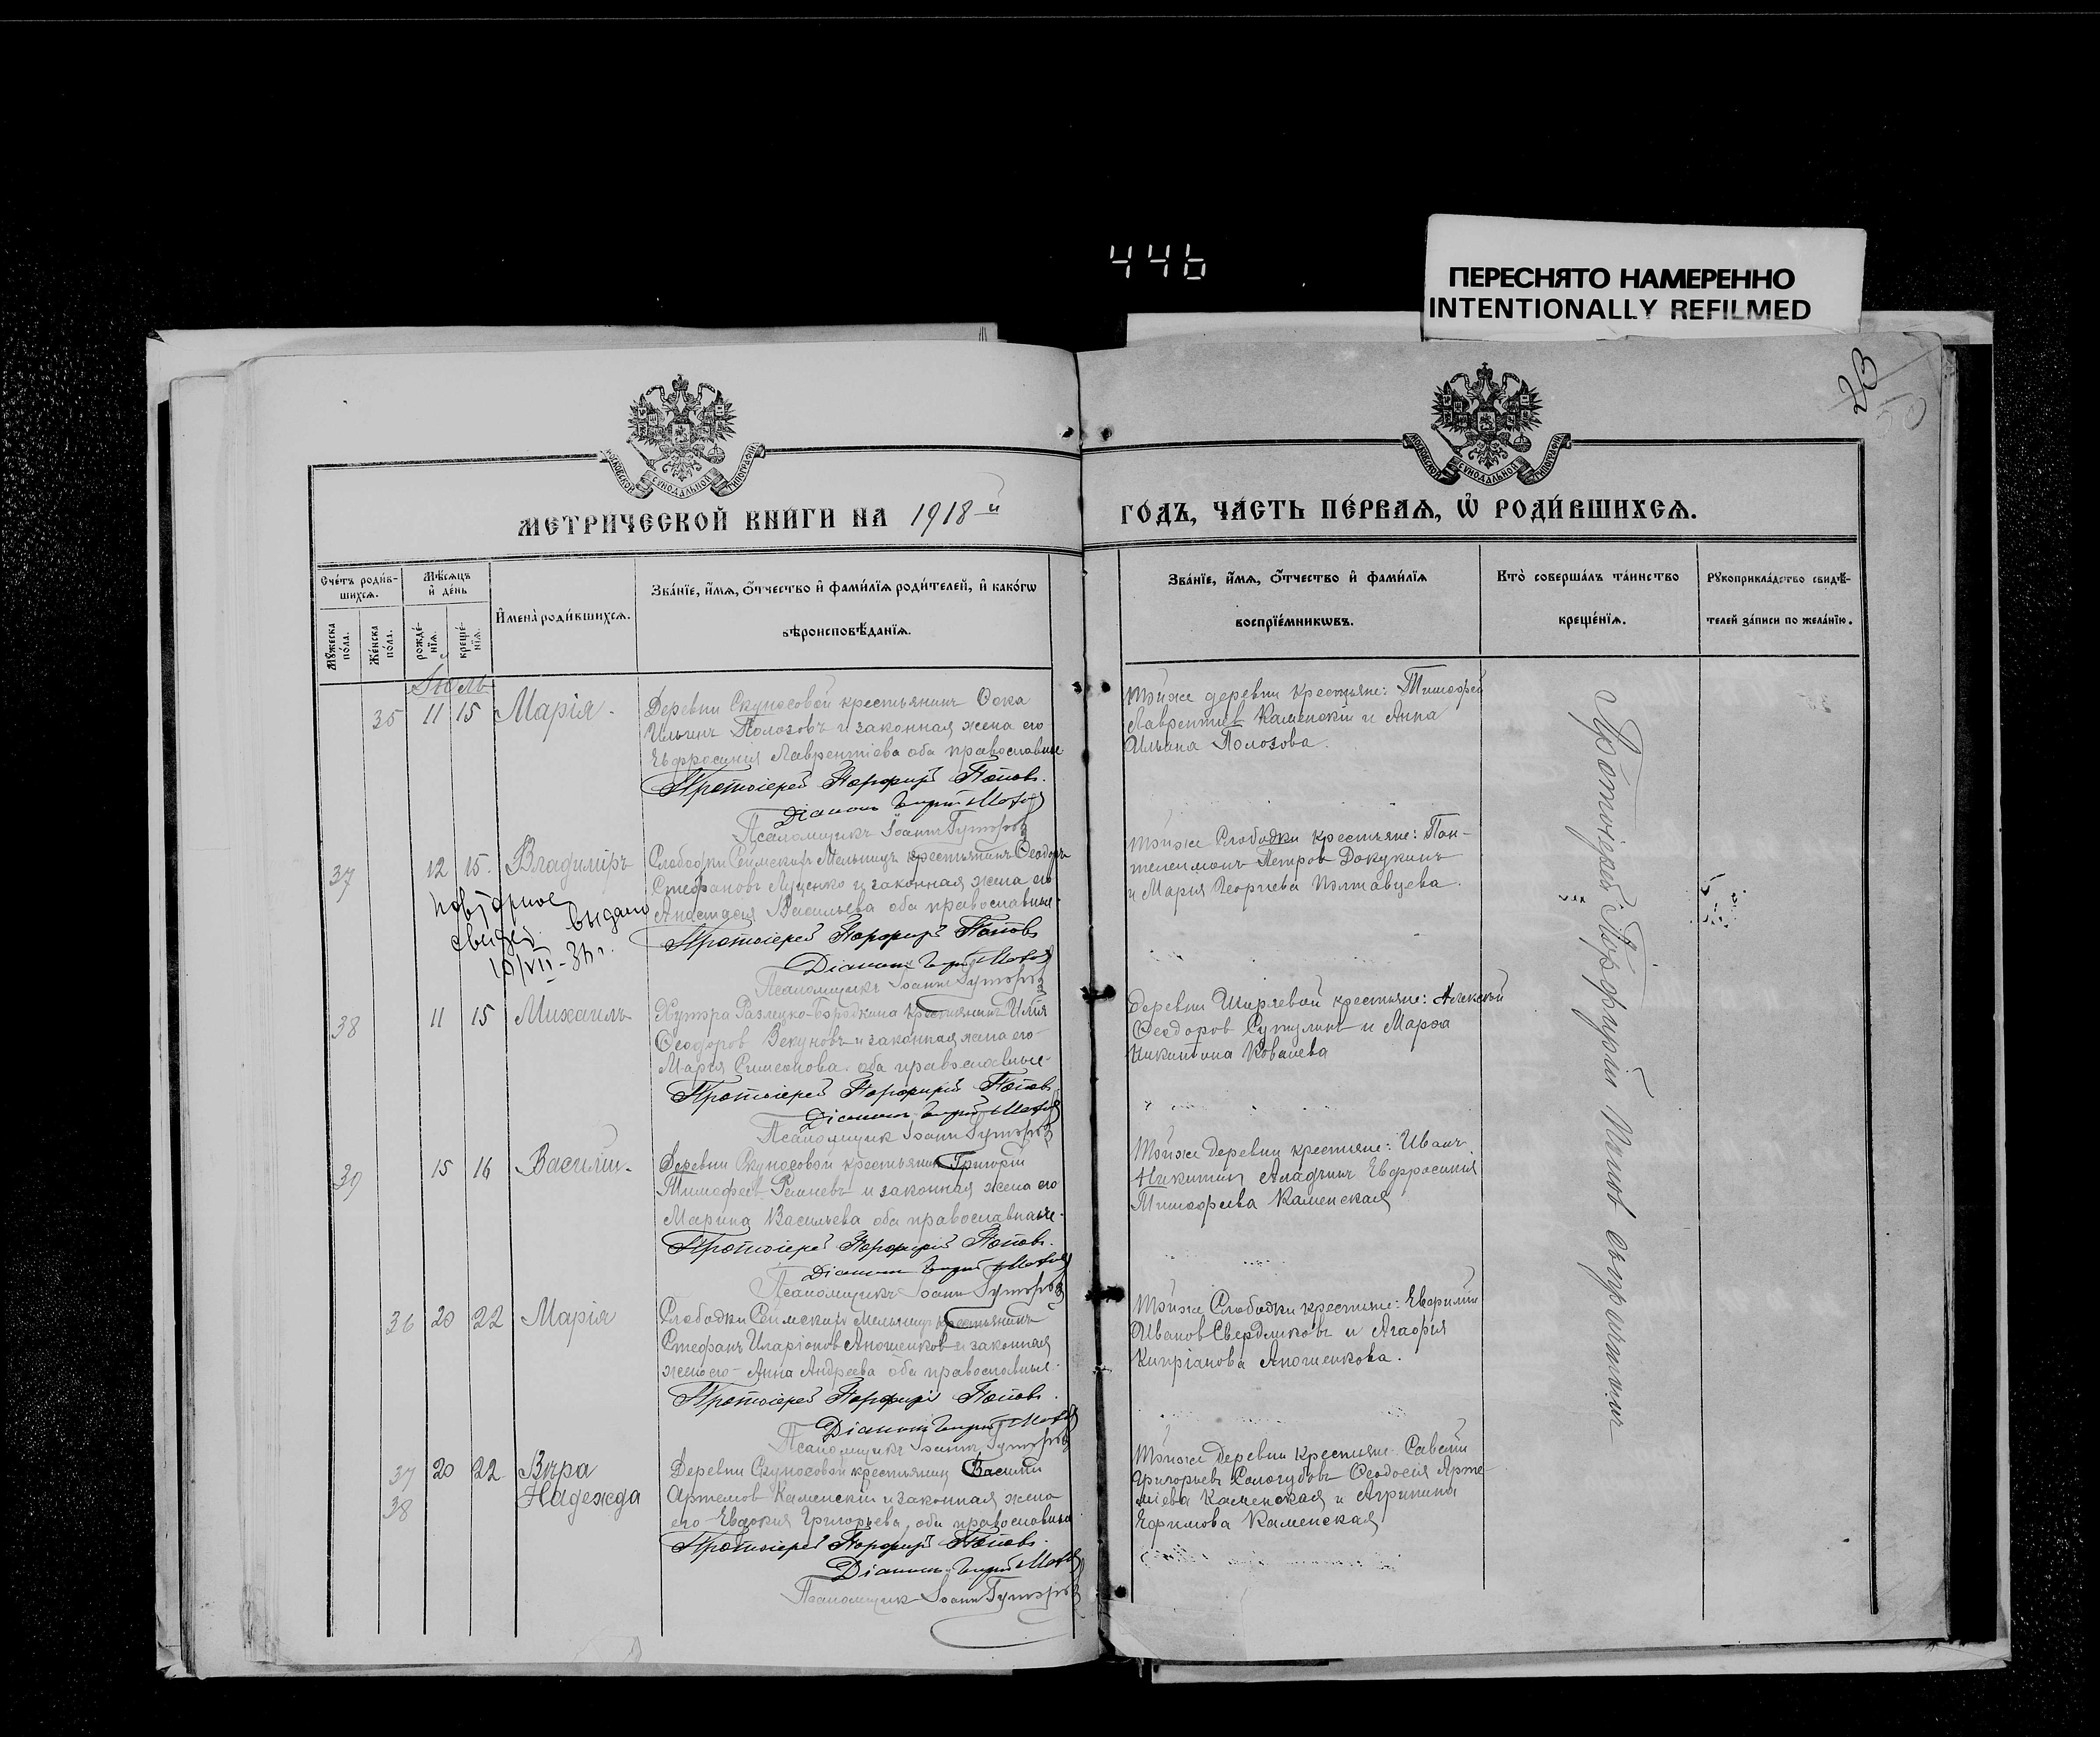 446
ПЕРЕСНЯТО НАМЕРЕННО
INTENTIONALLY REFILMED
23
МОСКОВСКОЙ СѴНОДАЛЬНОЙ ТИПОГРАФІИ
МОСКОВСКОЙ СѴНОДАЛЬНОЙ ТИПОГРАФІИ
МЕТРИ́ЧЕСКОЙ КНИ́ГИ НА 1918-й
ГО́ДЪ, ЧА́СТЬ ПЕ́РВАѦ, Ѡ҆ РОДИ́ВШИХСѦ.
Сче́тъ роди́в-
шихсѧ.
Мѣ́сѧцъ
и҆ де́нь
И҆мена̀ роди́вшихсѧ.
Зва́нїе, и҆́мѧ, ѻ҆́тчество и҆ фами́лїѧ роди́телей, и҆ како́гѡ
вѣроисповѣ́данїѧ.
Мꙋ́жеска по́ла.
Же́нска по́ла.
рожде́-
нїѧ.
креще́-
нїѧ.
Зва́нїе, и҆́мѧ, ѻ҆́тчество и҆ фами́лїѧ
воспрїе́мникѡвъ.
Кто̀ соверша́лъ та́инство
креще́нїѧ.
Рꙋкоприкла́дство свидѣ́-
телей за́писи по жела́нїю.
Іюль
35 11 15 Марія.
Деревни Скуносовой крестьянинъ Фока
Ильинъ Полозовъ и законная жена его
Евфросинія Лаврентіева оба православные
Протоіерей Порфирій Поповъ.
Діаконъ
Псаломщикъ Іоаннъ
Тойже деревни крестьяне: Тимофей
Лаврентіевъ Каменскій и Анна
Ильина Полозова.
37 12 15. Владиміръ
Слободки Сеймскихъ Мельницъ крестьянинъ Ѳеодоръ
Стефановъ Луценко и законная жена его
Анастасія Васильева оба православные.
Протоіерей Порфирій Поповъ
Діаконъ
Псаломщикъ Іоаннъ
повторное
свидет. выдано
10/VII-
Тойже Слободки крестьяне: Пан-
телеимонъ Петровъ Докукинъ
и Марія Георгіева Полтавцева.
38 11 15 Михаилъ
Хутора крестьянинъ Илія
Ѳеодоровъ Векуновъ и законная жена его
Марія Симеонова оба православные
Протоіерей Порфирій Поповъ
Діаконъ
Псаломщикъ Іоаннъ
Деревни Ширяевой крестьяне: Алексѣй
Ѳеодоровъ и Марѳа
Никитина Ковалева
39 15 16 Василій.
Деревни Скуносовой крестьянинъ Григорій
Тимофеевъ и законная жена его
Марина Васильева оба православные.
Протоіерей Порфирій Поповъ.
Діаконъ
Псаломщикъ Іоаннъ
Тойже деревни крестьяне: Иванъ
Никитинъ Аладьинъ Евфросинія
Тимофеева Каменская
36 20 22 Марія
Слободки Сеймскихъ Мельницъ крестьянинъ
Стефанъ Иларіоновъ Аношенковъ и законная
жена его Анна Андреева оба православные.
Протоіерей Порфирій Поповъ.
Діаконъ
Псаломщикъ Іоаннъ
Тойже Слободки крестьяне:
Ивановъ Свердликовъ и Агафія
Кипріанова Аношенкова.
37 20 22 Вѣра
38 Надежда
Деревни Скуносовой крестьянинъ Василій
Артемовъ Каменскій и законная жена
его Евдокія Григорьева, оба православные
Протоіерей Порфирій Поповъ.
Діаконъ
Псаломщикъ Іоаннъ
Тойже деревни крестьяне: Савелій
Григорьевъ Сологубовъ Ѳеодосія Арте-
міева Каменская и Агрипина
Ефимова Каменская
Протоіерей Порфирій Поповъ